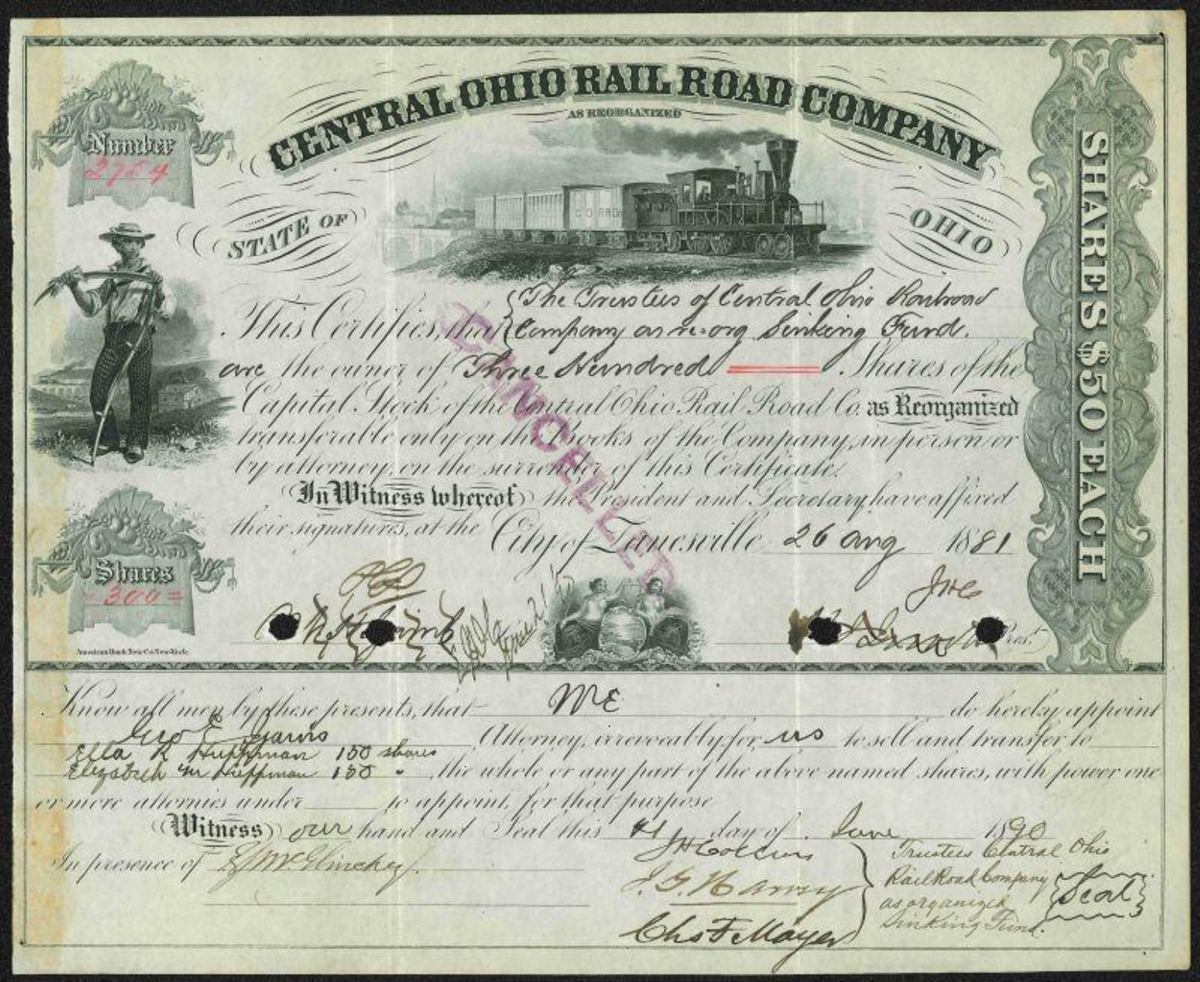 CENTRAL OHIO RAIL ROAD COMPANY
AS REORGANIZED
Number
2754
STATE OF OHIO
SHARES $50 EACH
This Certifies, that The Trustees of Central Ohio Railroad
Company as re-org Sinking Fund.
are the owner of Three Hundred Shares of the
Capital Stock of the Central Ohio Rail Road Co. as Reorganized
transferable only on the Books of the Company, in person or
by attorney, on the surrender of this Certificate.
In Witness whereof the President and Secretary, have affixed
their signatures, at the City of Zanesville 26 Aug 1881
CANCELLED
Shares
300
JHC
Prest.
American Bank Note Co. New York.
Know all men by these presents, that We do hereby appoint
Geo E Attorney, irrevocably, for us to sell and transfer to
Ella R Huffman 150 shares
Elizabeth M Huffman 150 " the whole or any part of the above named shares, with power one
or more attornies under to appoint, for that purpose
Witness our hand and Seal this 21 day of June 1890
In presence of
JH Collins
J. G. Harvey
Chs F Mayer
Trustees Central Ohio
RailRoad Company
as organized
Sinking Fund.
Seal